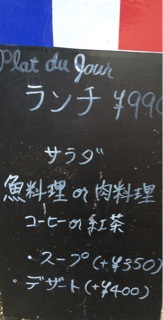 Plat du Jour
ランチ ¥990
サラダ
魚料理 or 肉料理
コーヒー or 紅茶
・スープ(+¥350)
・デザート(+¥400)